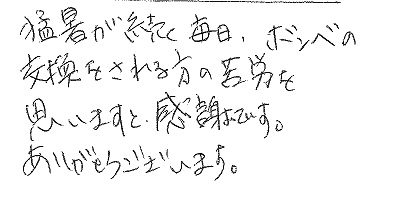 猛暑が続く毎日、ボンベの
交換をされる方の苦労を
思いますと、感謝です。
ありがとうございます。